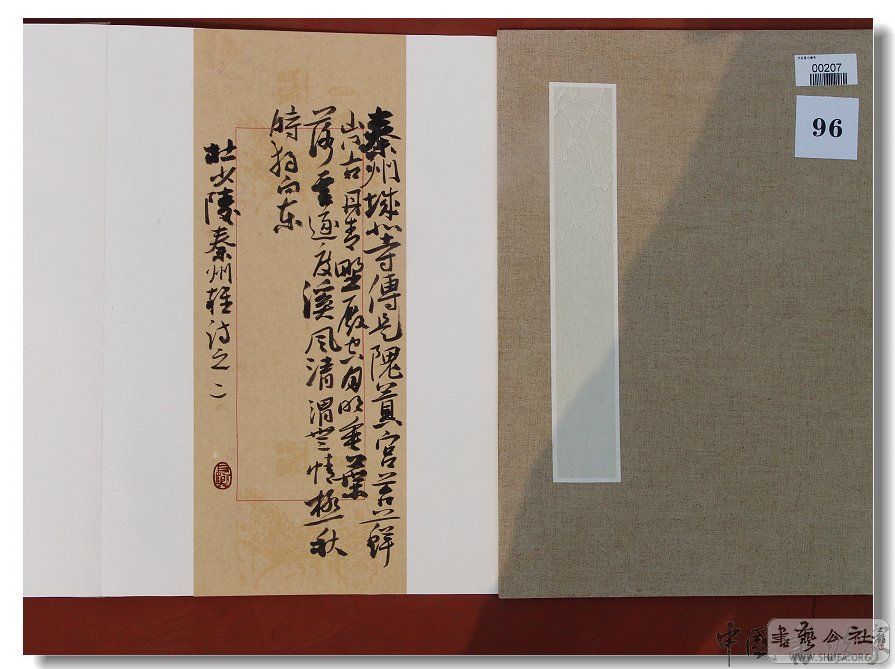 秦州城北寺傳是隗囂宮苔蘚
山門古丹青野殿空月明垂葉
露雲逐度溪風清渭無情極愁
時獨向东
杜少陵秦州雜詩之二
00207
96
中国書藝公社
WWW.SHUFA.ORG